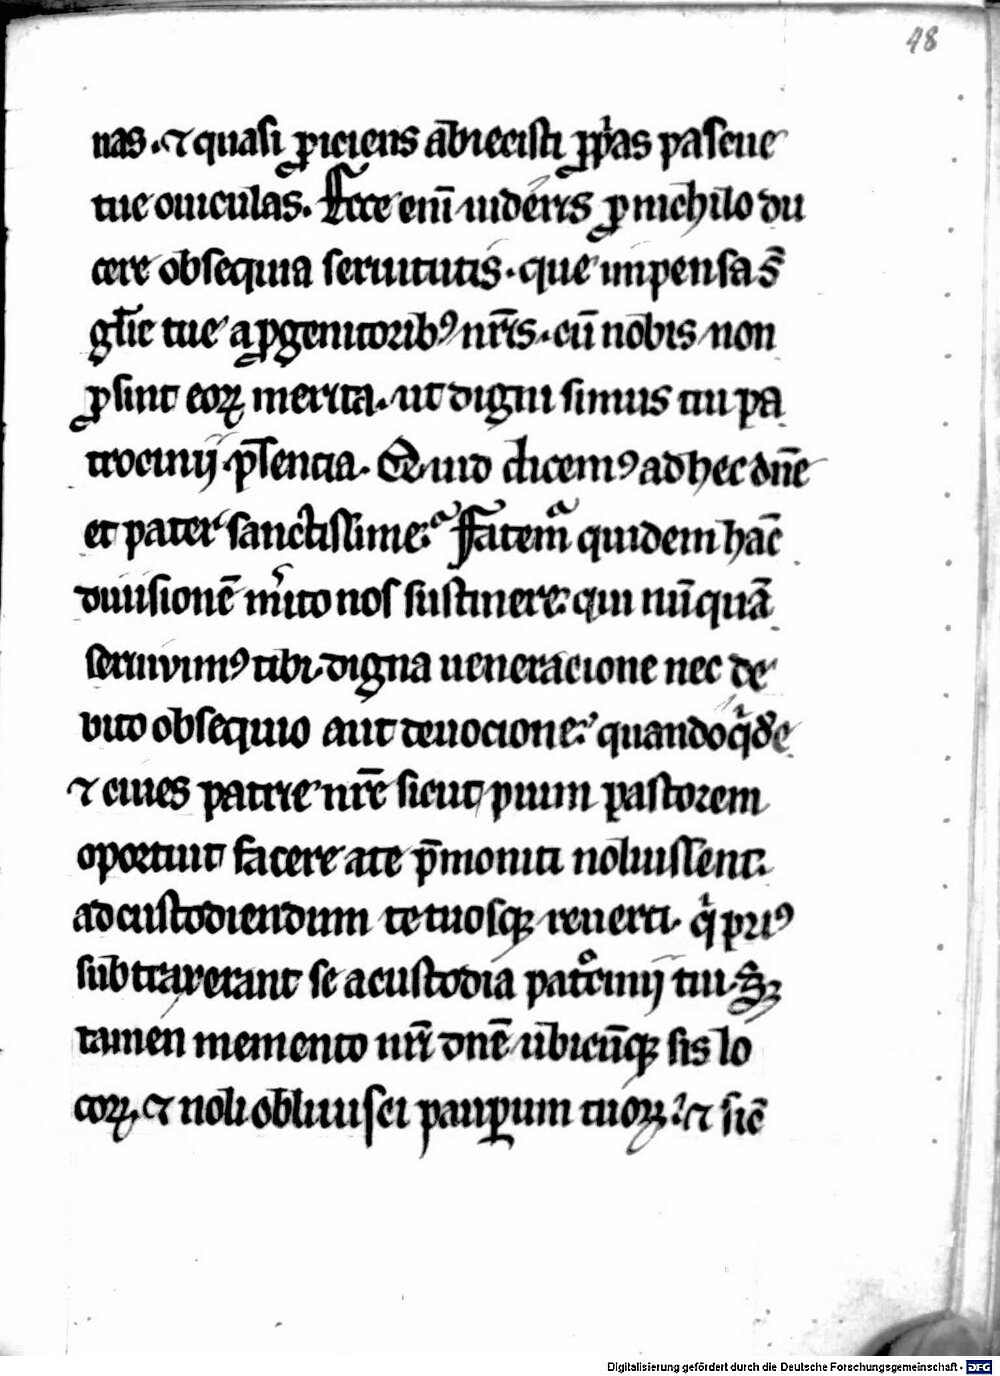 48
nas. ⁊ quasi ꝓiciens abiecisti ꝓp̾as pascue
tue ouiculas. Ecce enī uideris ꝓ nichilo du
cere obsequia seruitutis. que impensa s̄
gl̄ie tue a ꝓgenitoribꝰ nr̄is. cū nobis non
ꝓsint eoꝝ merita. ut digni simus tui pa
trocinij p̄sencia. Quid dicemꝰ ad hec dn̄e
et pater sanctissime. Fatemᷓ quidem hāc
diuisionē m̾ito nos sustinere. qui nūquā
seruiuimꝰ tibi digna ueneracione nec de
bito obsequio aut deuocione. quandoqͥdē
⁊ ciues patrie nr̄e sicut pium pastorem
oportuit facere a te p̄moniti noluissent.
ad custodiendum te tuosqꝫ reuerti. qͥ priꝰ
subtraxerant se a custodia patͦcinij tui. Sꝫ
tamen memento nr̄i dn̄e ubicūqꝫ sis lo
coꝝ. ⁊ noli obliuisci pauꝑum tuoꝝ. ⁊ sic̄
Digitalisierung gefördert durch die Deutsche Forschungsgemeinschaft - DFG